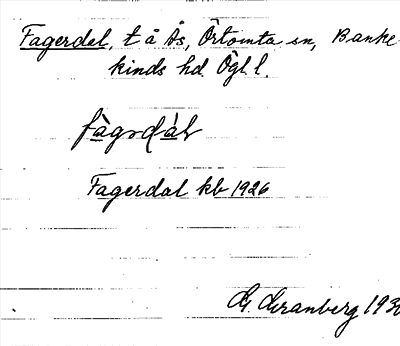 Fagerdal, t å Ås, Örtomta sn, Banke-
kinds hd Ögl l.
fàgədál
Fagerdal kb 1926
G. Granberg 193